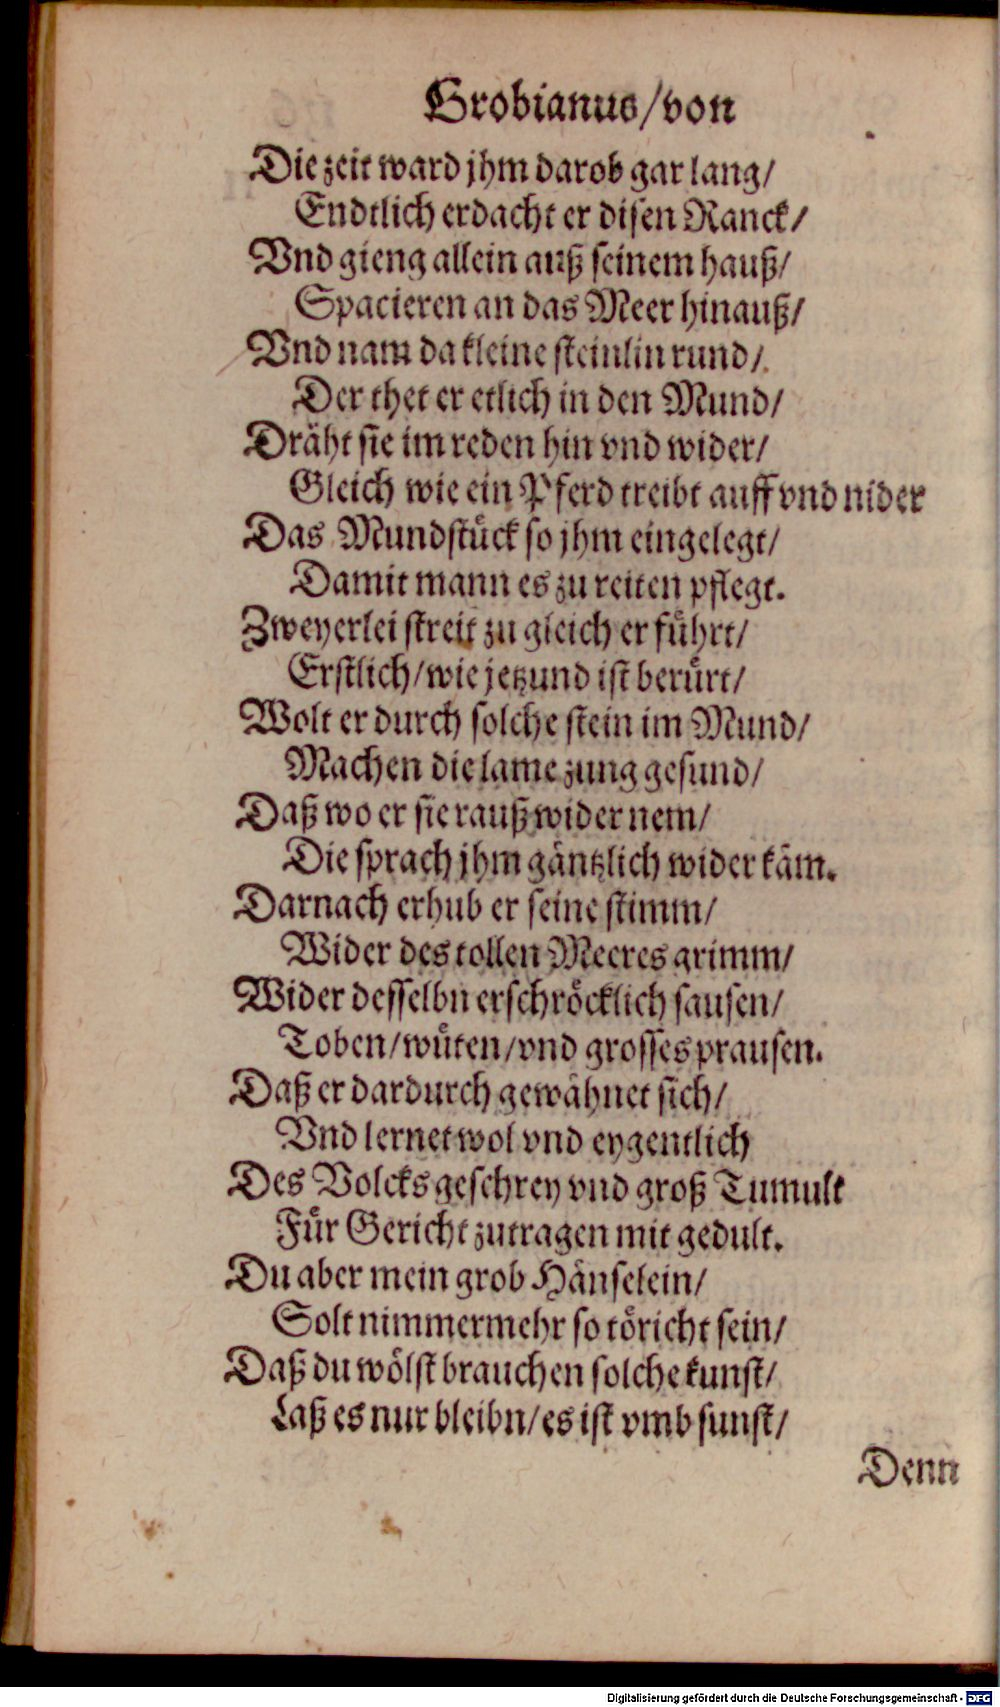 Grobianus/von
Die zeit ward jhm darob gar lang/
Endtlich erdacht er disen Ranck/
Vnd gieng allein auß seinem hauß/
Spacieren an das Meer hinauß/
Vnd nam da kleine steinlin rund/
Der thet er etlich in den Mund/
Dräht sie im reden hin vnd wider/
Gleich wie ein Pferd treibt auff vnd nider
Das Mundstück so jhm eingelegt/
Damit mann es zu reiten pflegt.
Zweyerlei streit zu gleich er führt/
Erstlich/wie jetzund ist berürt/
Wolt er durch solche stein im Mund/
Machen die lame zung gesund/
Daß wo er sie rauß wider nem/
Die sprach jhm gäntzlich wider käm.
Darnach erhub er seine stimm/
Wider des tollen Meeres grimm/
Wider desselbn erschröcklich sausen/
Toben/wüten/vnd grosses prausen.
Daß er dardurch gewähnet sich/
Vnd lernet wol vnd eygentlich
Des Volcks geschrey vnd groß Tumult
Für Gericht zutragen mit gedult.
Du aber mein grob Hänselein/
Solt nimmermehr so töricht sein/
Daß du wölst brauchen solche kunst/
Laß es nur bleibn/es ist vmb sunst/
Denn
Digitalisierung gefördert durch die Deutsche Forschungsgemeinschaft - DFG